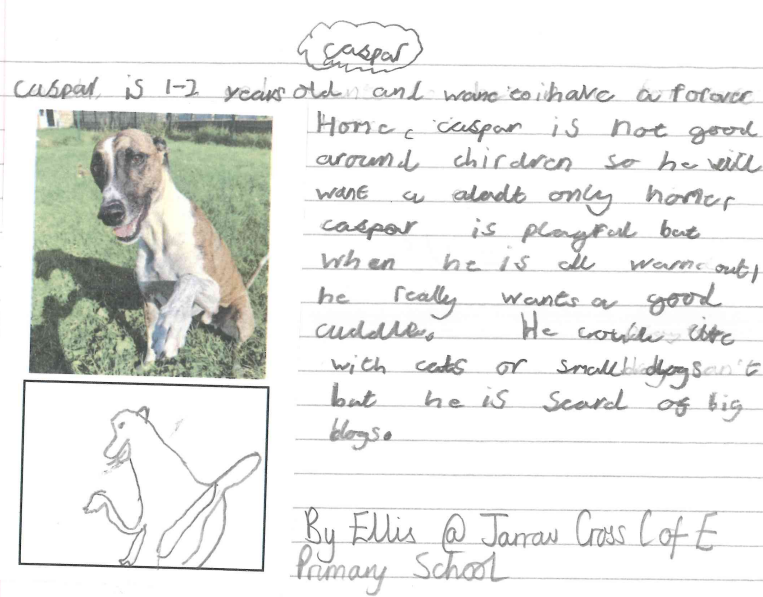 caspar
caspar is 1-2 years old and want to have a forever
Home, caspar is not good
around children so he will
want a aladt only homes
caspar is playful but
when he is all warne out,
he really wants a good
cuddle. He would live
with cats or small dogs
but he is scard of big
blogs.
By Ellis @ Jarrow Cross C of E
Primary School